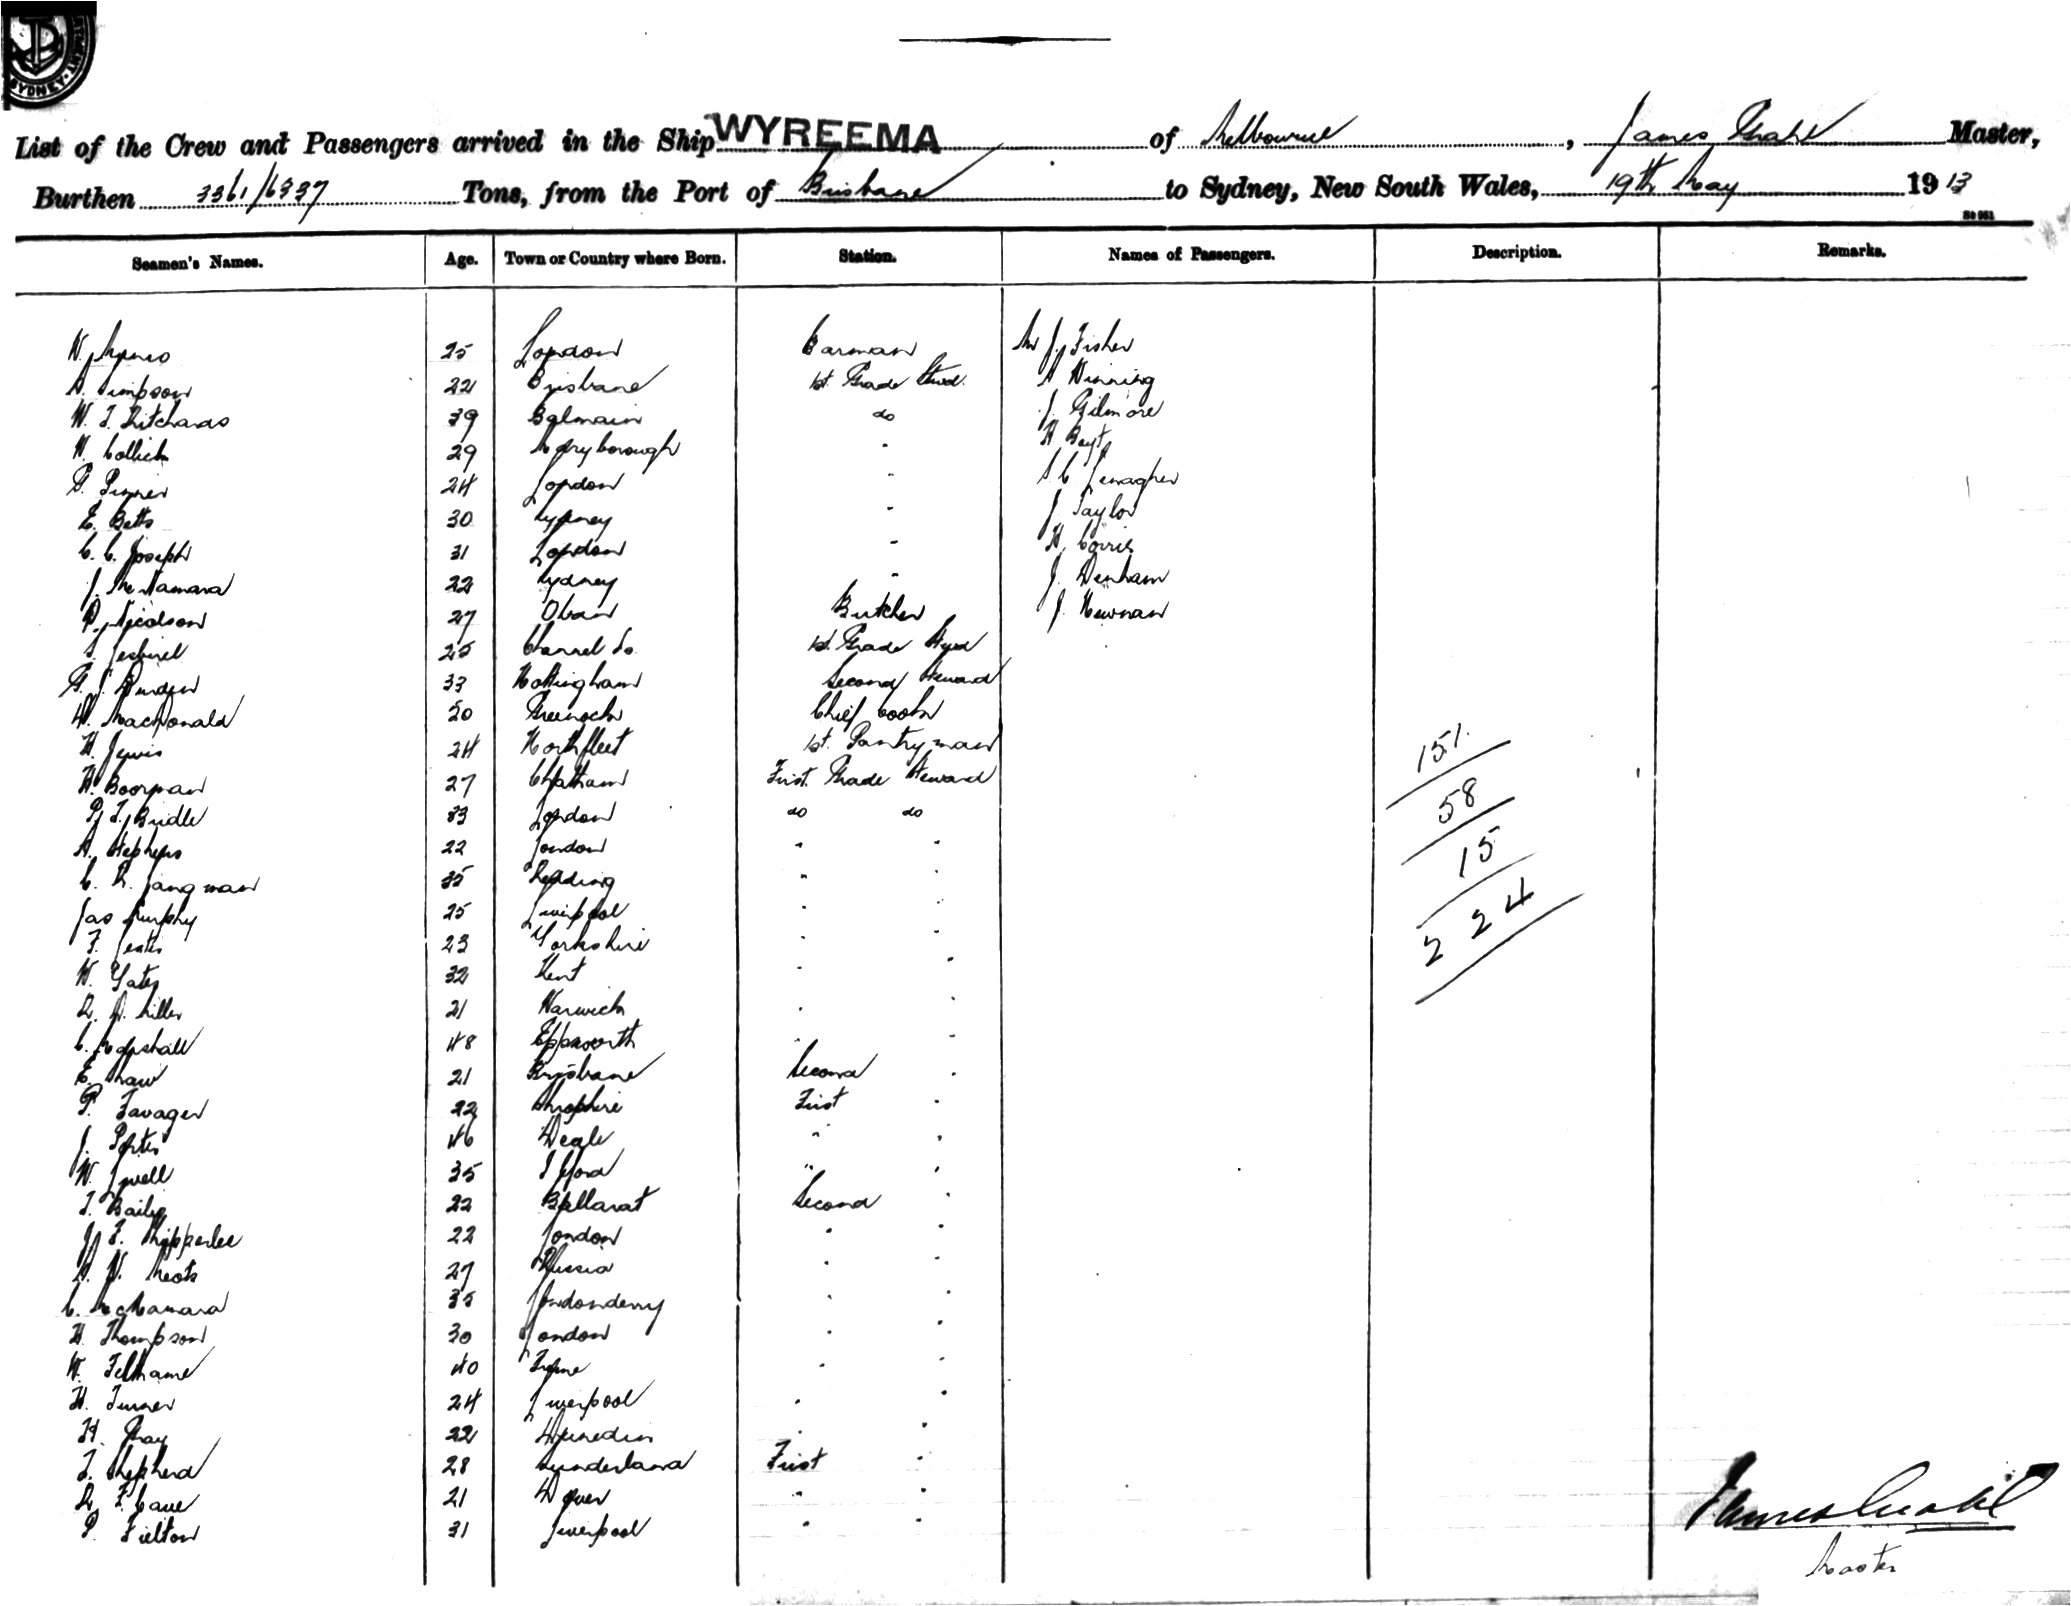 SYDNEY
List of the Crew and Passengers arrived in the Ship WYREEMA of Melbourne, James Master,
Burthen 3361/6337 Tons, from the Port of Brisbane to Sydney, New South Wales, 19th May 1913
Seamen's Names. Age. Town or Country where Born. Station. Names of Passengers. Description. Remarks.
W. Munro 25 London Barman Mr J. Fisher
A. Simpson 22 Brisbane 1st. Grade Stwd. A Winning
W. T. Ritchards 39 Balmain do J. Gilmore
W. 29 Maryborough " H
G. 24 London " S C
E. Betts 30 Sydney " J Taylor
C. C. Joseph 31 London " H
J. McNamara 22 Sydney " J. Denham
P. Nicolson 27 Oban Butcher J. Newman
S. 25 Channel Is. 1st. Grade Stwd
G. J. 33 Nottingham Second Steward
W. MacDonald 20 Greenock Chief Cook
H. 24 Northfleet 1st. Pantryman
H. Boorman 27 Chatham First Grade Steward
P. T. Bridle 33 London do do
A. Stephens 22 London " "
C. R. Langman 35 Reading " "
Jas Murphy 25 Liverpool " "
F. 23 Yorkshire " "
W. Yates 32 Kent " "
R. D. Miller 21 Warwick " "
C. Marshall 48 Eppworth " "
E. Shaw 21 Brisbane Second "
P. Tavager 22 Shropshire First "
J. Porter 46 Deal " "
W. 35 Ilford " "
T. Bailey 22 Ballarat Second "
J. F. Shipperlee 22 London " "
A. W. Meots 27 Russia " "
C. McNamara 35 Londonderry " "
H. Thompson 30 London " "
W. Felthame 40 Tyne " "
H. Turner 24 Liverpool " "
H. Gray 22 Dunedin " "
T. Shepherd 28 Sunderland First "
R. F. Cave 21 Dover " "
P. Fielton 31 Liverpool " "
151.
58
15
224
James
Master